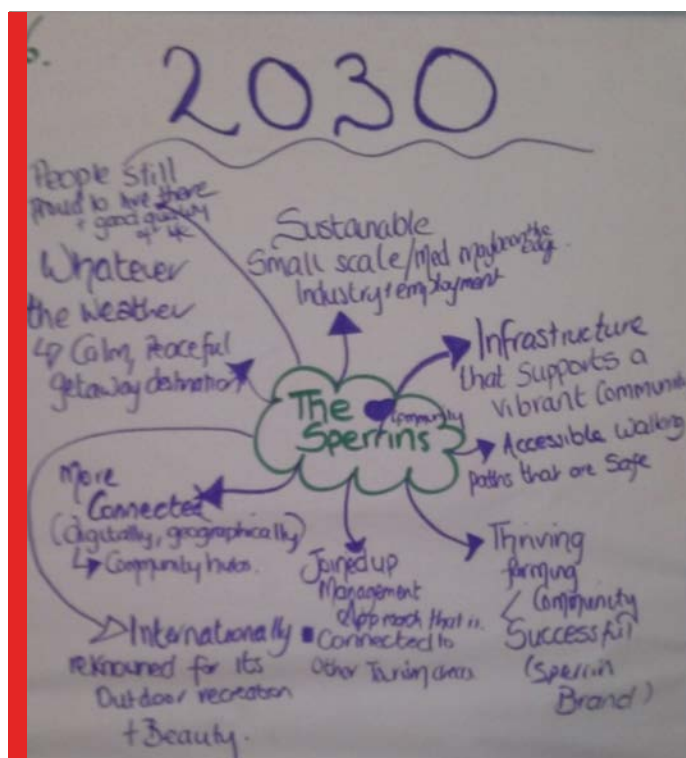 6.
2030
People still
Proud to live there
+ good quality
of life
Whatever
the weather
↳ Calm, Peaceful
getaway destination
Sustanable
Small scale/Med maybe on the Edge.
Industry + employment
Infrastructure
that supports a
vibrant Communi
The
Sperrins
Community
Accessible Walking
paths that are Safe
More
Connected
(digitally, geographically)
↳ Community hubs.
Joined up
Management
Approach that is
Connected to
Other Tourism areas
Thriving
farming
Community
Successful
(Sperrin
Brand)
Internationally
reknouned for its
Outdoor recreation
+ Beauty.